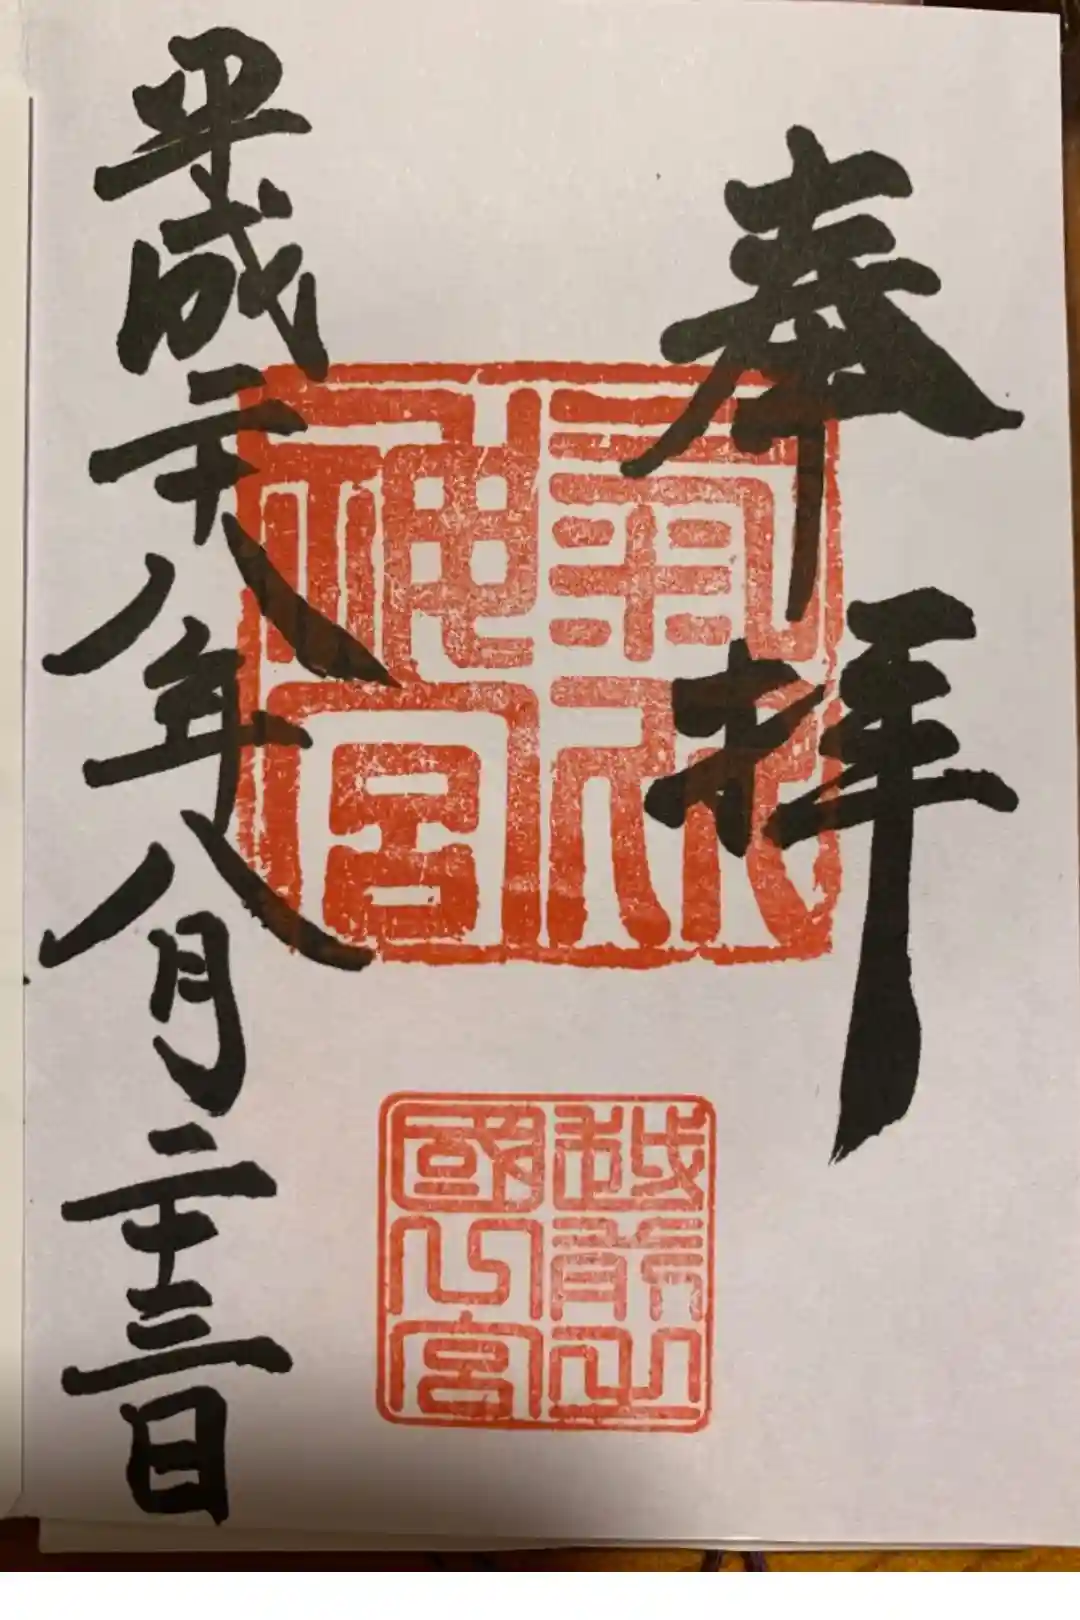 奉拝
氣比
神宮
越前之
國一宮
平成二十八年八月二十三日